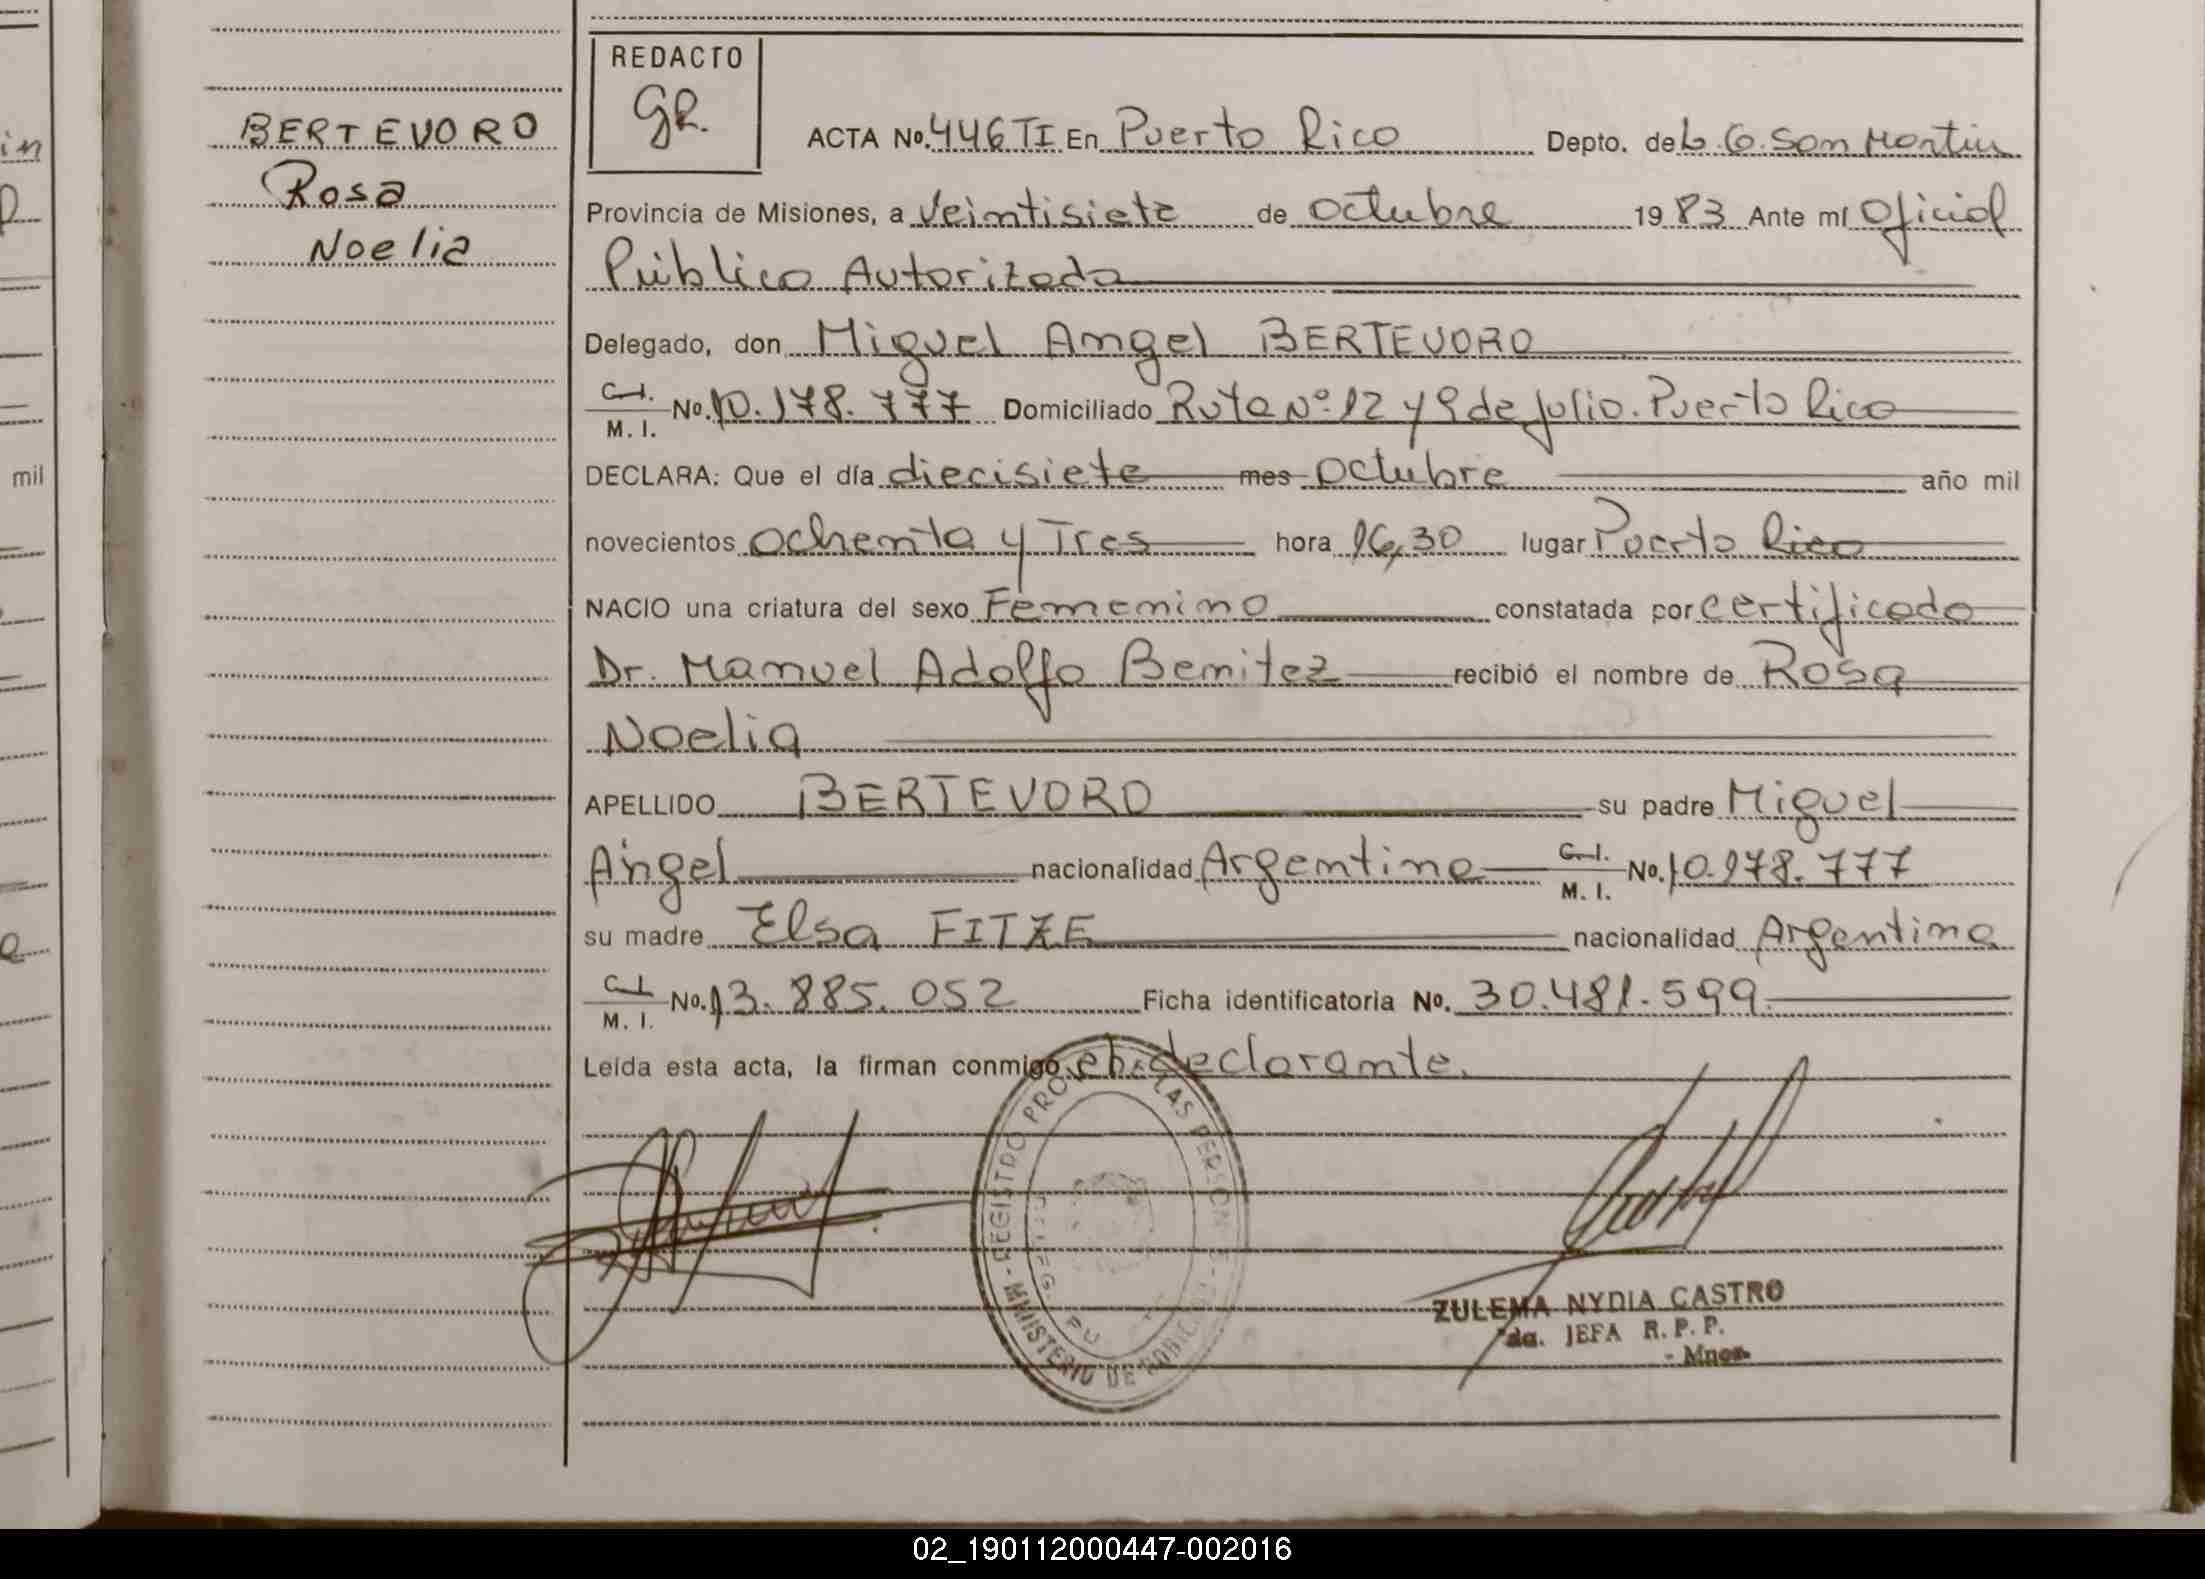 BERTEVORO
Rosa
Noelia
REDACTO
GR.
ACTA No. 446 TI En Puerto Rico Depto. de L. G. San Martin
Provincia de Misiones, a Veintisiete de octubre 1983 Ante mí Oficial
Público Autorizada
Delegado, don Miguel Angel BERTEVORO
C.I. M. I. No. 10.178.777 Domiciliado Ruta Nº 12 y 9 de julio. Puerto Rico
DECLARA: Que el día diecisiete mes octubre año mil
novecientos ochenta y Tres hora 16,30 lugar Puerto Rico
NACIO una criatura del sexo Femenino constatada por certificado
Dr. Manuel Adolfo Benitez recibió el nombre de Rosa
Noelia
APELLIDO BERTEVORO su padre Miguel
Angel nacionalidad Argentina C.I. M. I. No. 10.178.777
su madre Elsa FITZE nacionalidad Argentina
C.I. M. I. No. 13.885.052 Ficha identificatoria No. 30.481.599
Leída esta acta, la firman conmigo el declarante.
REGISTRO PRO LAS PERSON
MINISTERIO DE GOBIE
ZULEMA NYDIA CASTRO
JEFA R. P. P.
- Mnes
mil
02_190112000447-002016